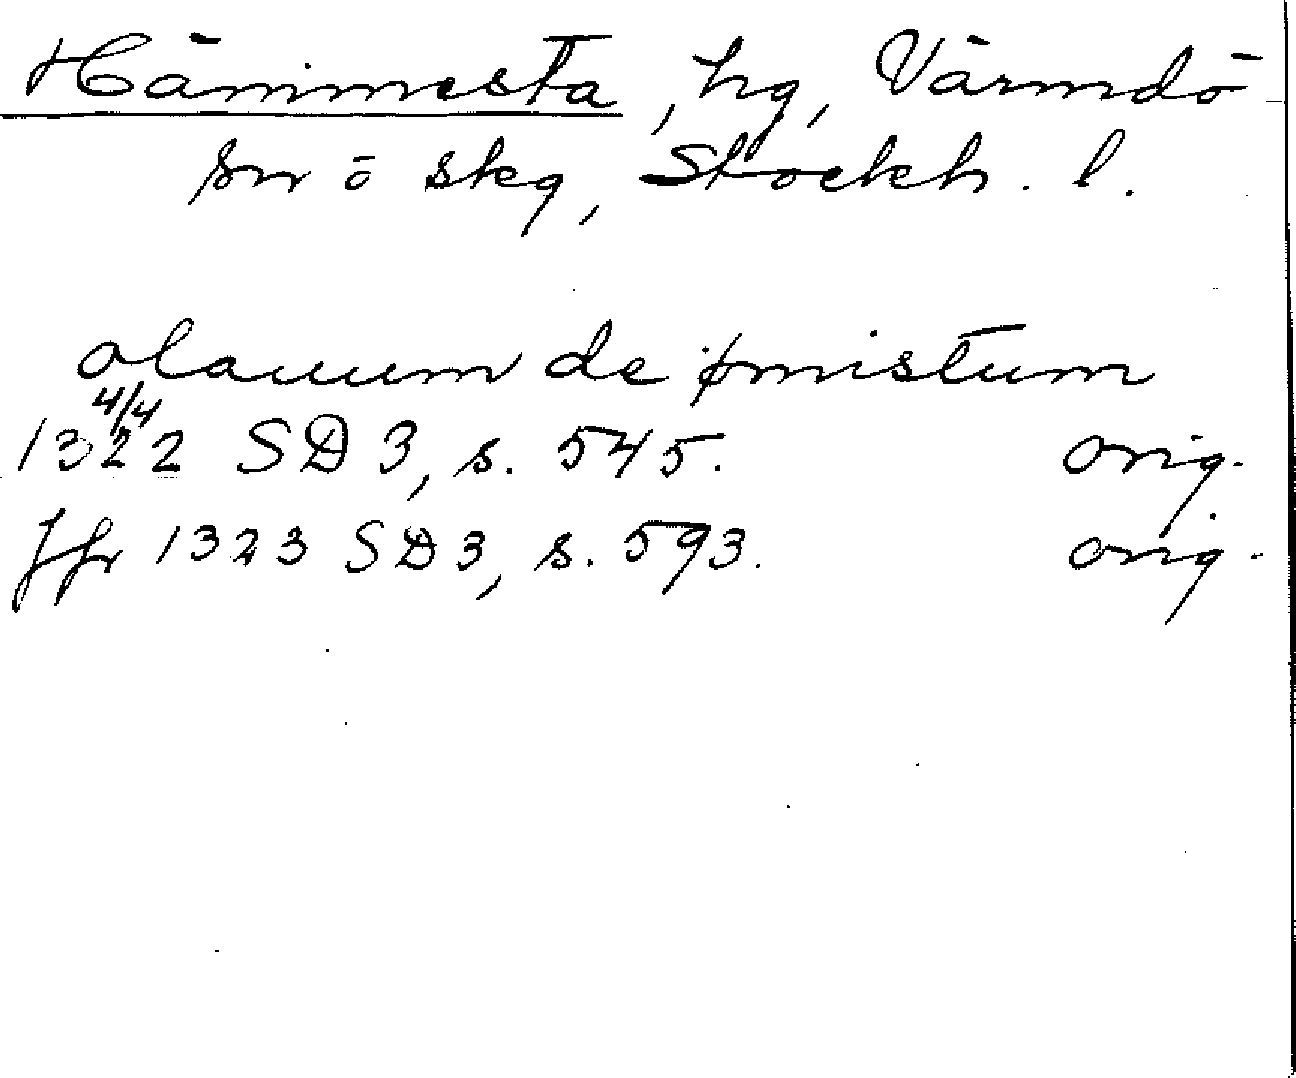 Hämmesta, hg, Värmdö
sn ö skg, Stockh. l.
olauum de ømistum
1322 4/4 SD 3, s. 545. orig.
Jfr 1323 SD 3, s. 593. orig.